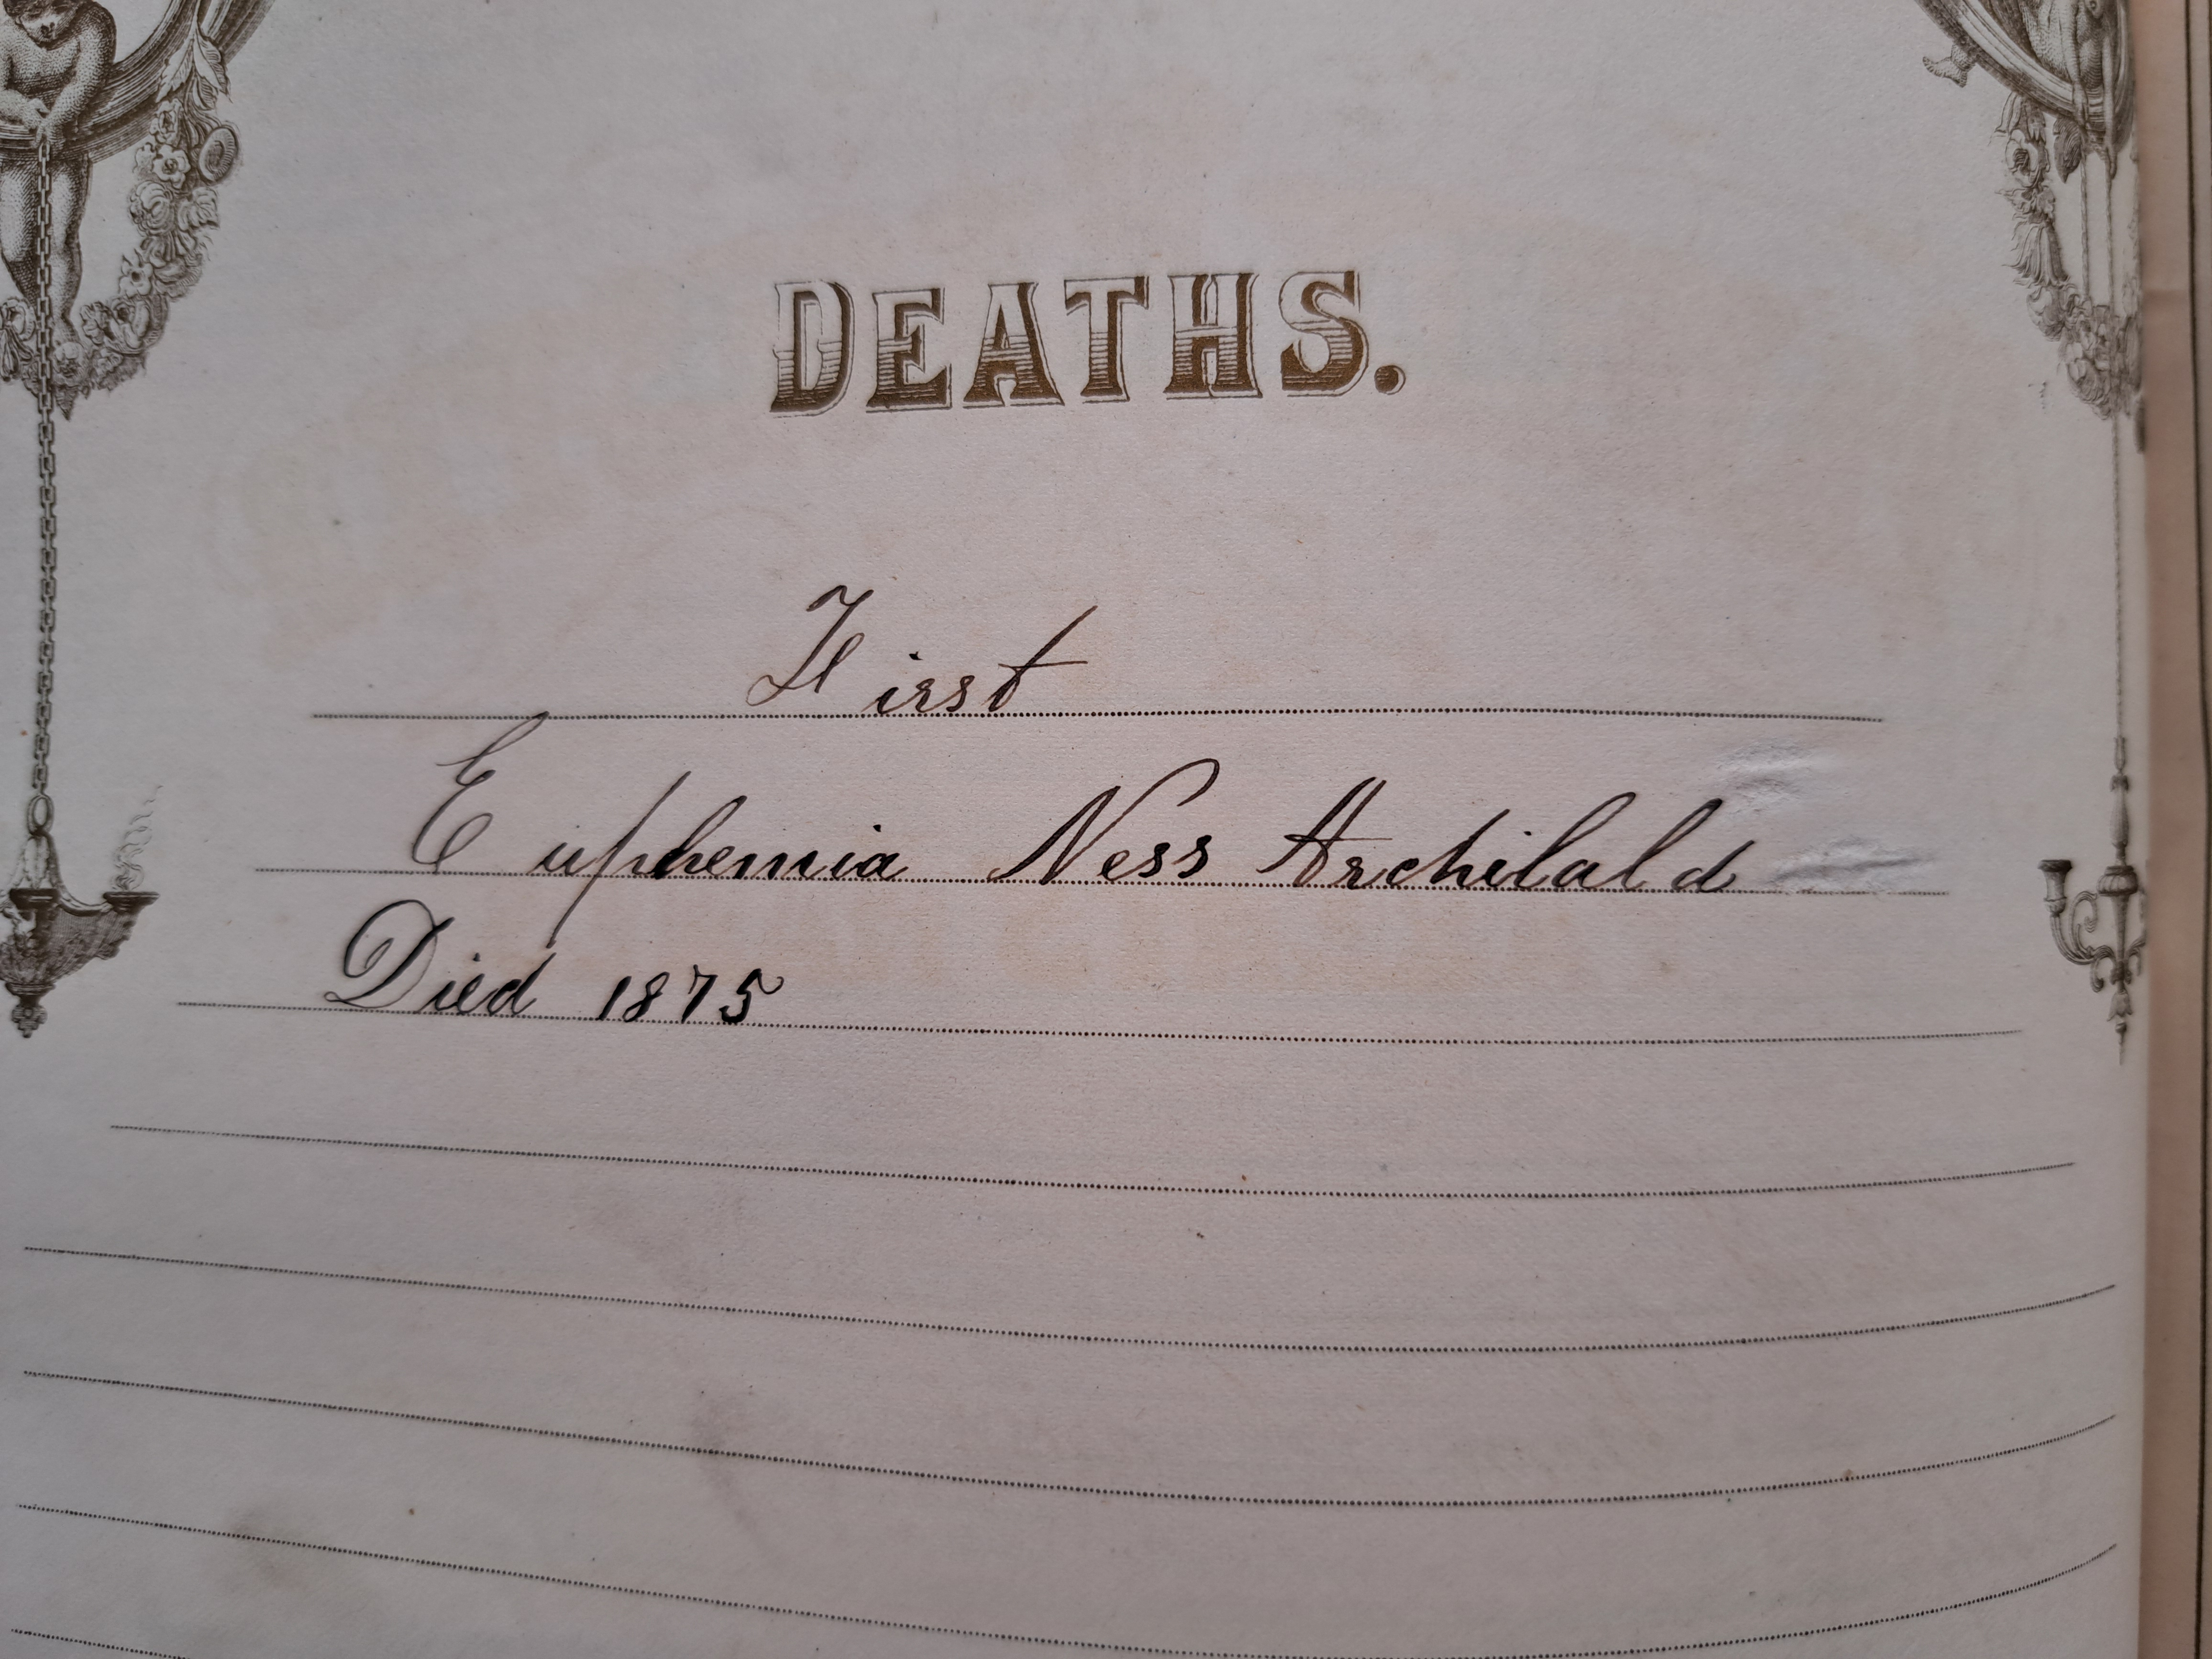 DEATHS.
First
Euphemia Ness Archilald
Died 1875